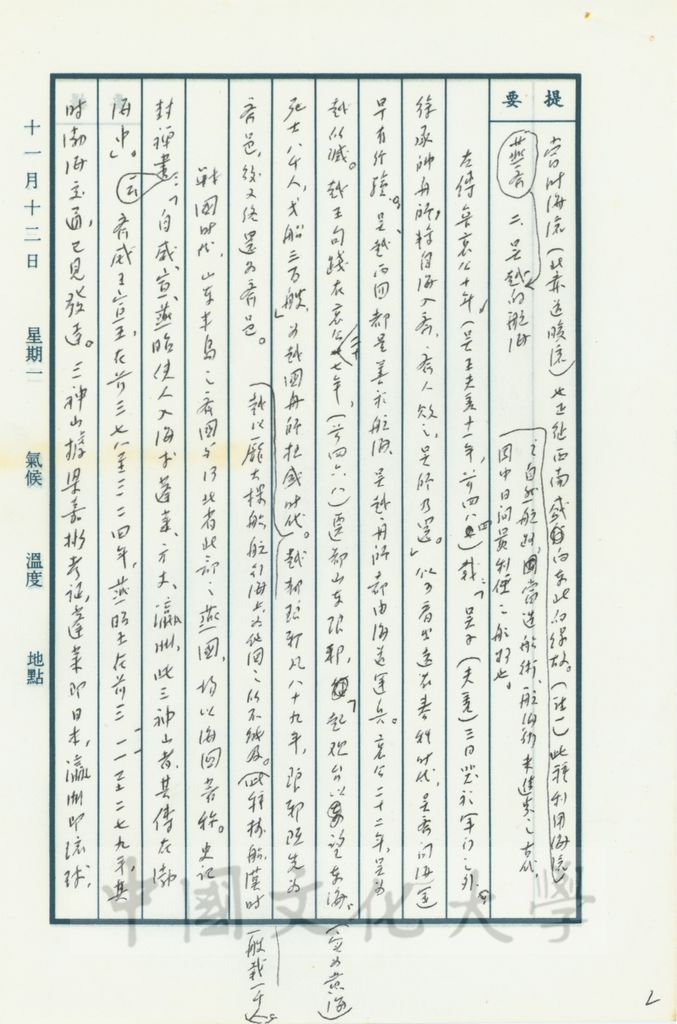 提要
當時海流（此亦送暖流）也正從西南成向東北的緣故。（註一）此種利用海流
之自然航路，當造船術、航海術未進步之古代，
國中日間最利便之航路也。
燕齊
二、吳越的航海
左傳魯哀公十年（吳王夫差十一年，前四八四）載：「吳子（夫差）三日哭於軍門之外，
徐承帥舟師，將自海入齊，齊人敗之，吳師乃還。」似乎看出遠在春秋時代，吳齊間海運
早有行駛。吳越兩國都是善於航海，吳越舟師都由海道運兵。哀公二十二年，吳為
越所滅。越王句踐在哀公二十七年，（前四六八）遷都山東琅邪，「起觀台以望東海。（實為黃海）
死士八千人，戈船三百艘」為越國舟師極盛時代。越都琅邪凡八十九年，琅邪既先為
齊邑，後又終還為齊邑。
（越以龐大樓船航行海上為他國之所不能及。（此種樓船漢時一般載一千人）
戰國時代，山東半島之齊國與河北省北部之燕國，均以海國著稱。史記
封禪書：「自威、宣、燕昭使人入海求蓬萊、方丈、瀛洲，此三神山者，其傳在渤
海中」。云
齊威王宣王，在前三七八至三二四年，燕昭王在前三一一至二七九年，其
時渤海交通，已見發達。三神山據梁嘉彬考証，蓬萊即日本，瀛洲即琉球，
十一月十二日 星期一 氣候 溫度 地點
中國文化大學
2